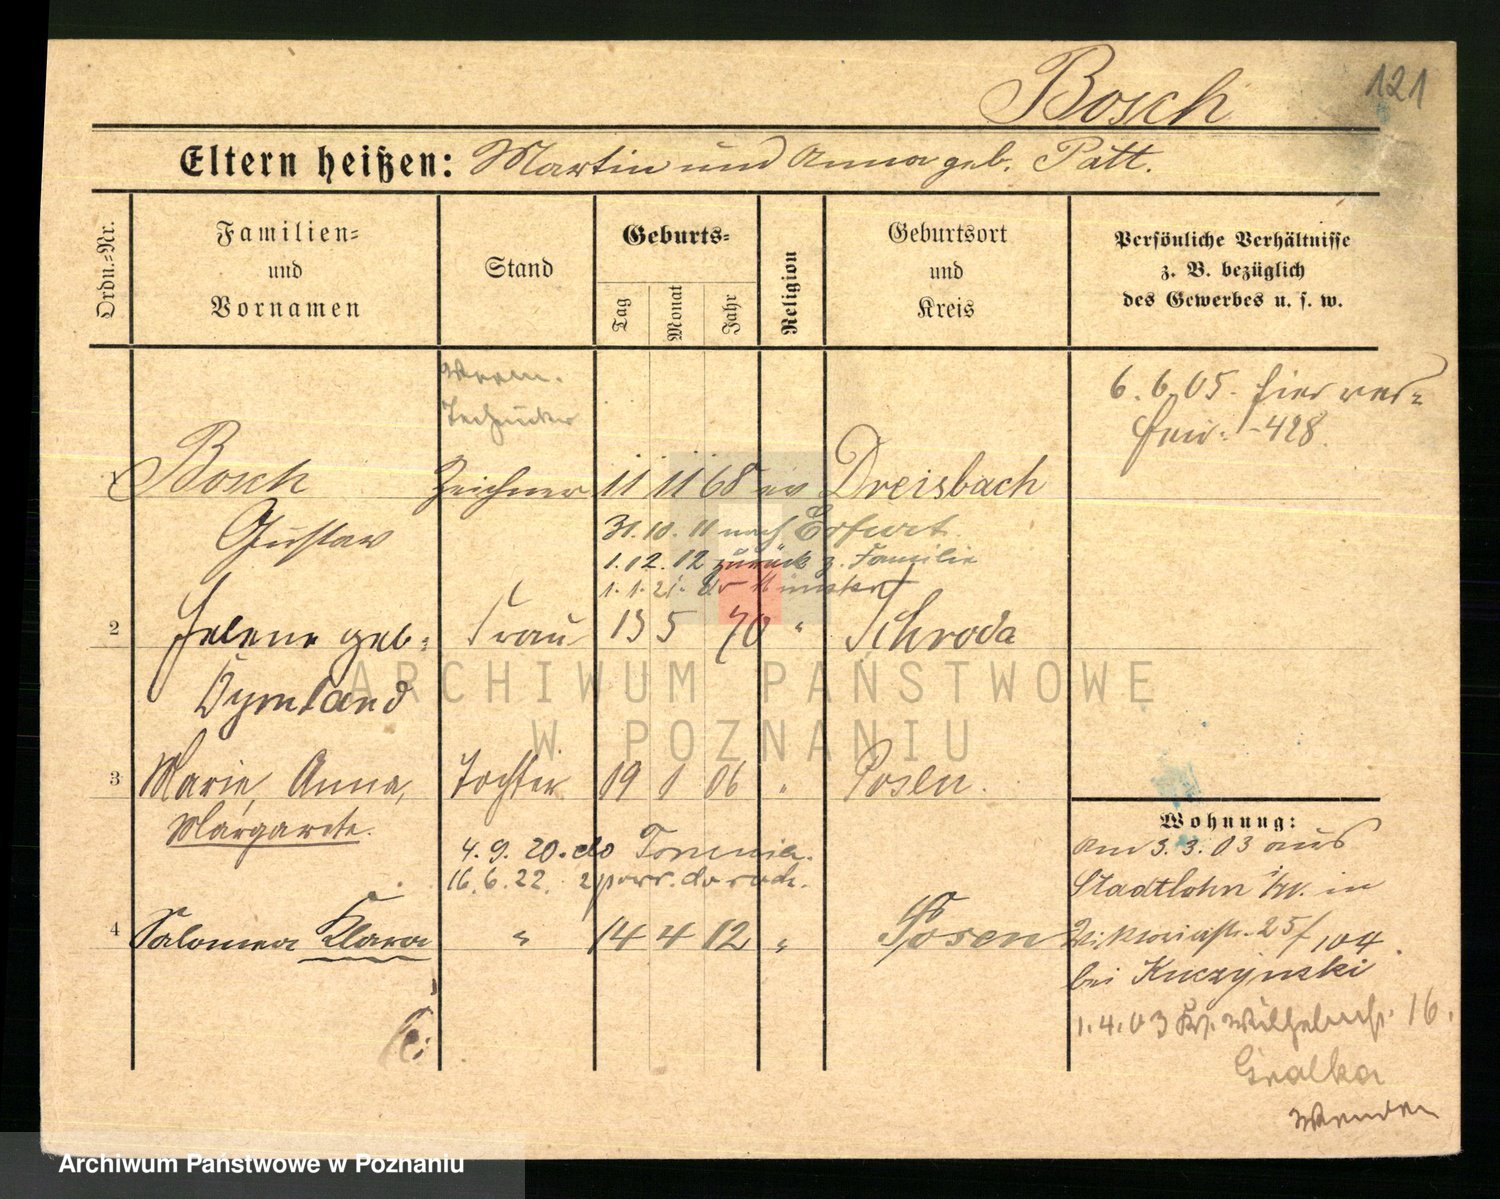 Bosch
121
Eltern heißen: Martin und Anna geb. Patt.
Ordn.-Nr.
Familien-
und
Vornamen
Stand
Geburts-
Tag
Monat
Jahr
Religion
Geburtsort
und
Kreis
Persönliche Verhältnisse
z. B. bezüglich
des Gewerbes u. s. w.
Techniker
6.6.05. hier ver-
428.
1 Bosch Zeichner 11 11 68 ev Dreisbach
Gustav
31.10.11 nach Erfurt.
1.12.12 zurück z. Familie
1.1.21. Münster
2 Helene geb. Frau 13 5 70 " Schroda
3 Marie, Anna, Tochter 19 1 06 " Posen.
Margarete.
4.9.20. do
16.6.22.
4 Salomea Klara " 14 4 12 " Posen
Wohnung:
Am 3.3.03 aus
Stadtlohn i/W. in
Viktoriastr. 25 f 104.
bei Kuczynski
1.4.03 16.
Gralka
ARCHIWUM PAŃSTWOWE
W POZNANIU
Archiwum Państwowe w Poznaniu